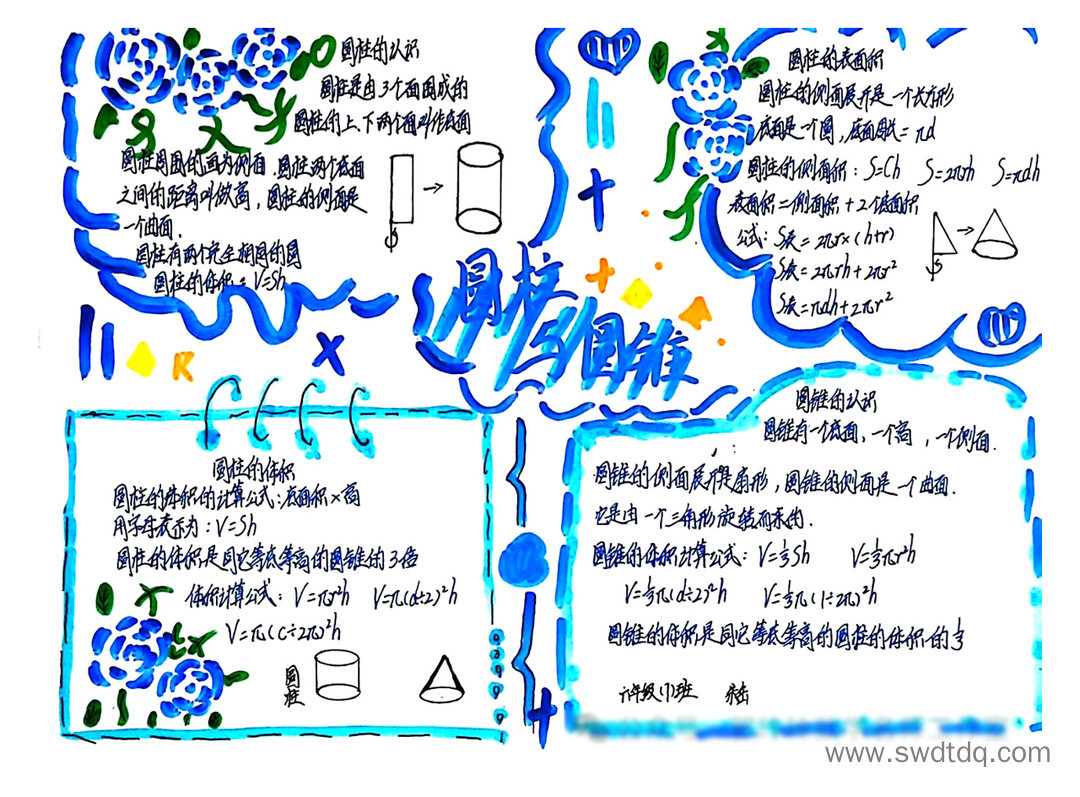 圆柱的认识
圆柱是由3个面围成的
圆柱的上、下两个面叫作底面
圆柱周围的面为侧面.圆柱两个底面
之间的距离叫做高，圆柱的侧面是
一个曲面.
圆柱有两个完全相同的圆
圆柱的体积：V=Sh
圆柱的表面积
圆柱的侧面展开是一个长方形
底面是一个圆，底面周长=πd
圆柱的侧面积：S=Ch S=2πrh S=πdh
表面积=侧面积+2个底面积
公式：S表=2πr×(h+r)
S表=2πrh+2πr²
S表=πdh+2πr²
圆柱
与圆锥
圆柱的体积
圆柱的体积的计算公式：底面积×高
用字母表示为：V=Sh
圆柱的体积是同它等底等高的圆锥的3倍
体积计算公式：V=πr²h V=π(d÷2)²h
V=π(c÷2π)²h
圆柱
圆锥的认识
圆锥有一个底面，一个高，一个侧面.
圆锥的侧面展开是扇形，圆锥的侧面是一个曲面.
它是由一个三角形旋转而来的.
圆锥的体积计算公式：V=⅓Sh V=⅓πr²h
V=⅓π(d÷2)²h V=⅓π(1÷2π)²h
圆锥的体积是同它等底等高的圆柱的体积的⅓
六年级(1)班
www.swdtdq.com